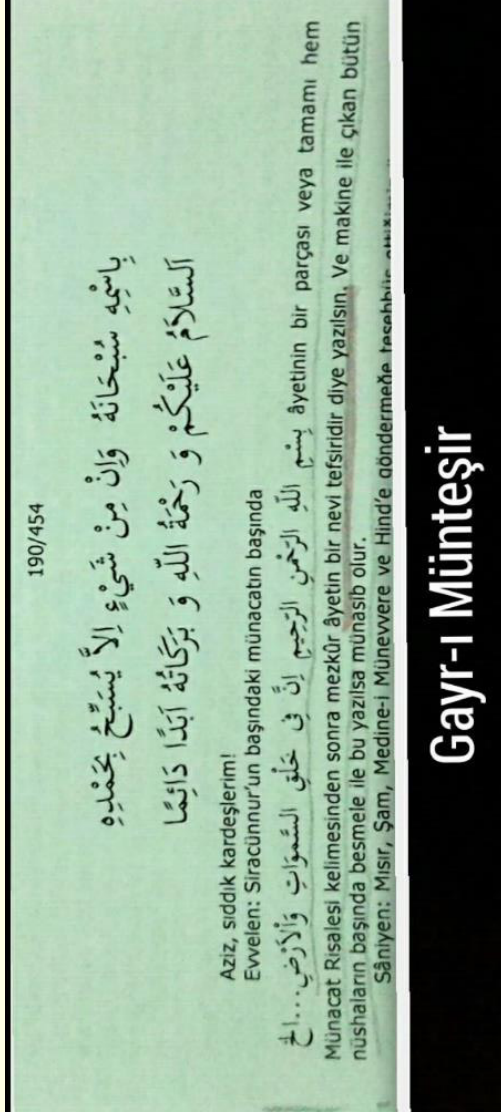 190/454
بِاسْمِهِ سُبْحَانَهُ وَاِنْ مِنْ شَيْءٍ اِلاَّ يُسَبِّحُ بِحَمْدِهِ
اَلسَّلاَمُ عَلَيْكُمْ وَ رَحْمَةُ اللّٰهِ وَ بَرَكَاتُهُ اَبَدًا دَائِمًا
Aziz, sıddık kardeşlerim!
Evvelen: Siracünnur'un başındaki münacatın başında
بِسْمِ اللّٰهِ الرَّحْمٰنِ الرَّحِيمِ اِنَّ فِى خَلْقِ السَّمٰوَاتِ وَاْلاَرْضِ...الخ âyetinin bir parçası veya tamamı hem
Münacat Risalesi kelimesinden sonra mezkûr âyetin bir nevi tefsiridir diye yazılsın. Ve makine ile çıkan bütün
nüshaların başında besmele ile bu yazılsa münasib olur.
Sâniyen: Mısır, Şam, Medine-i Münevvere ve Hind'e göndermeğe teşebbüs ettiğimiz
Gayr-ı Münteşir